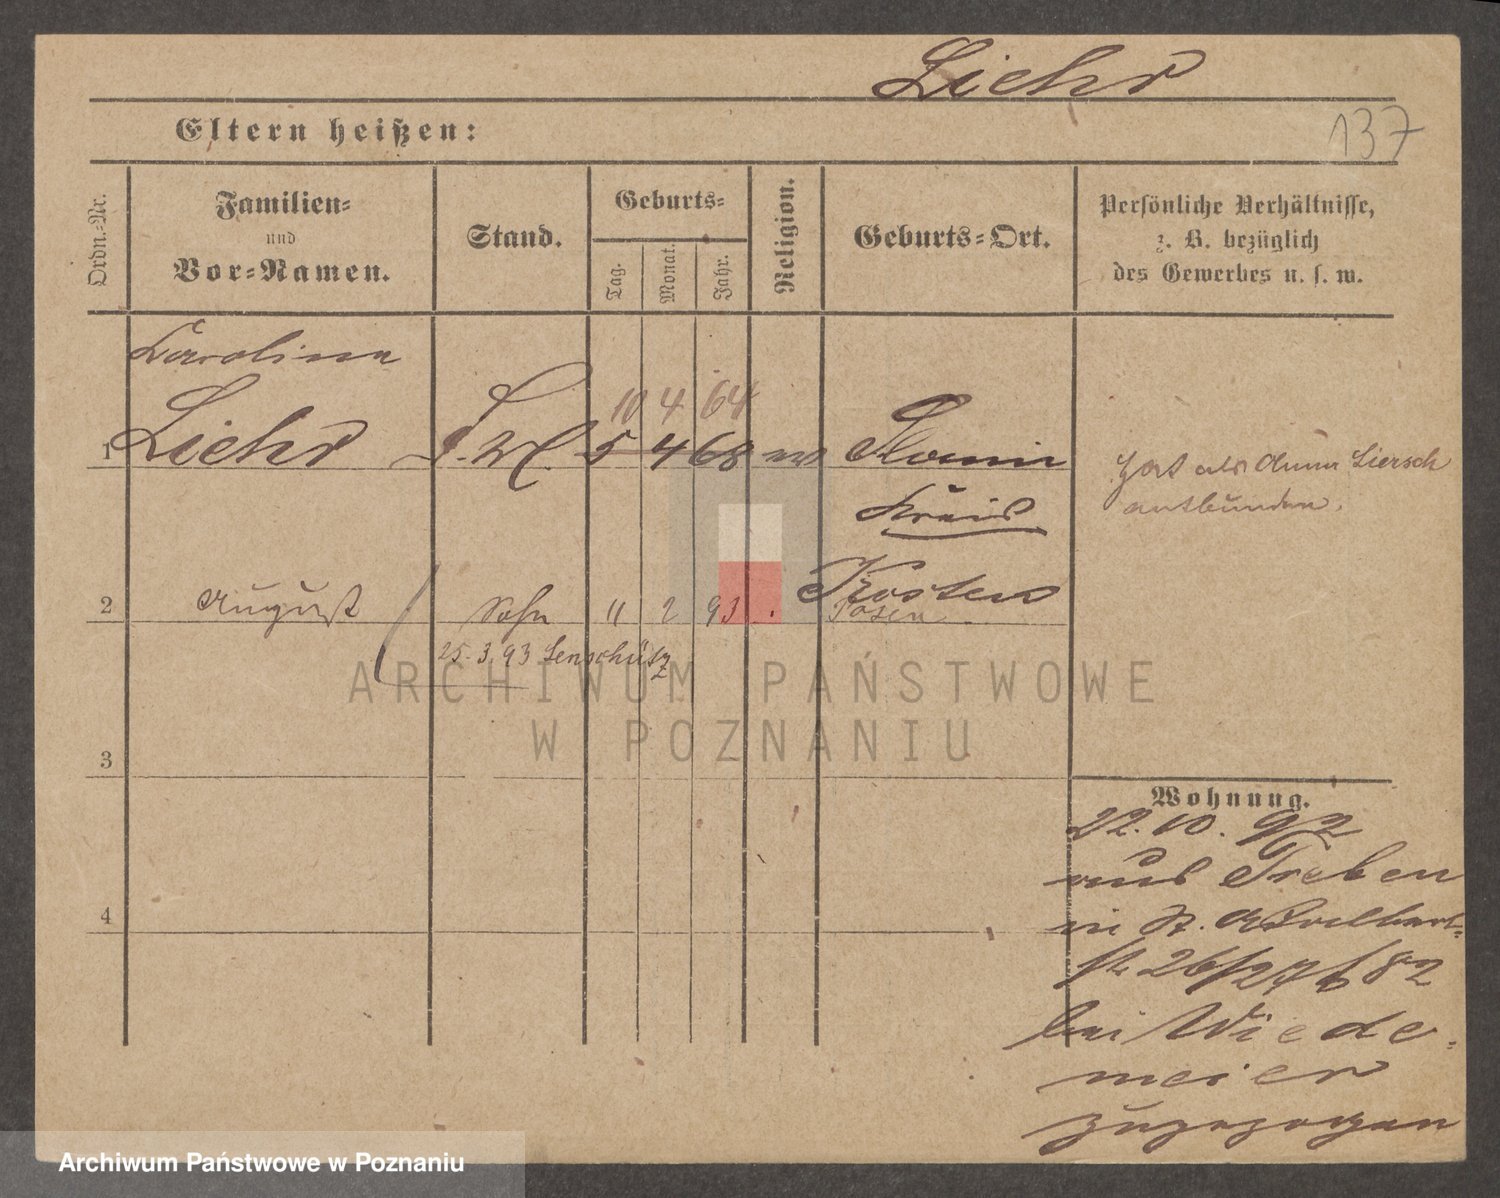 Liehr
Eltern heißen:
137
Ordn.-Nr.
Familien-
und
Vor-Namen.
Stand.
Geburts-
Tag.
Monat.
Jahr.
Religion.
Geburts-Ort.
Persönliche Verhältnisse,
z. B. bezüglich
des Gewerbes u. s. w.
Carolina
10 4 64
1 Liehr 5 4 68
Kreis
Kosten
Hat als Anna Liersch
entbunden.
2 August Sohn " 2 93 Posen
25.3.93 Lenschütz
ARCHIWUM PAŃSTWOWE
W POZNANIU
3
4
Wohnung.
22.10.92
aus Treben
in St. Adalbert-
str 26/27 b 82
bei Wiede-
meier
zugezogen
Archiwum Państwowe w Poznaniu